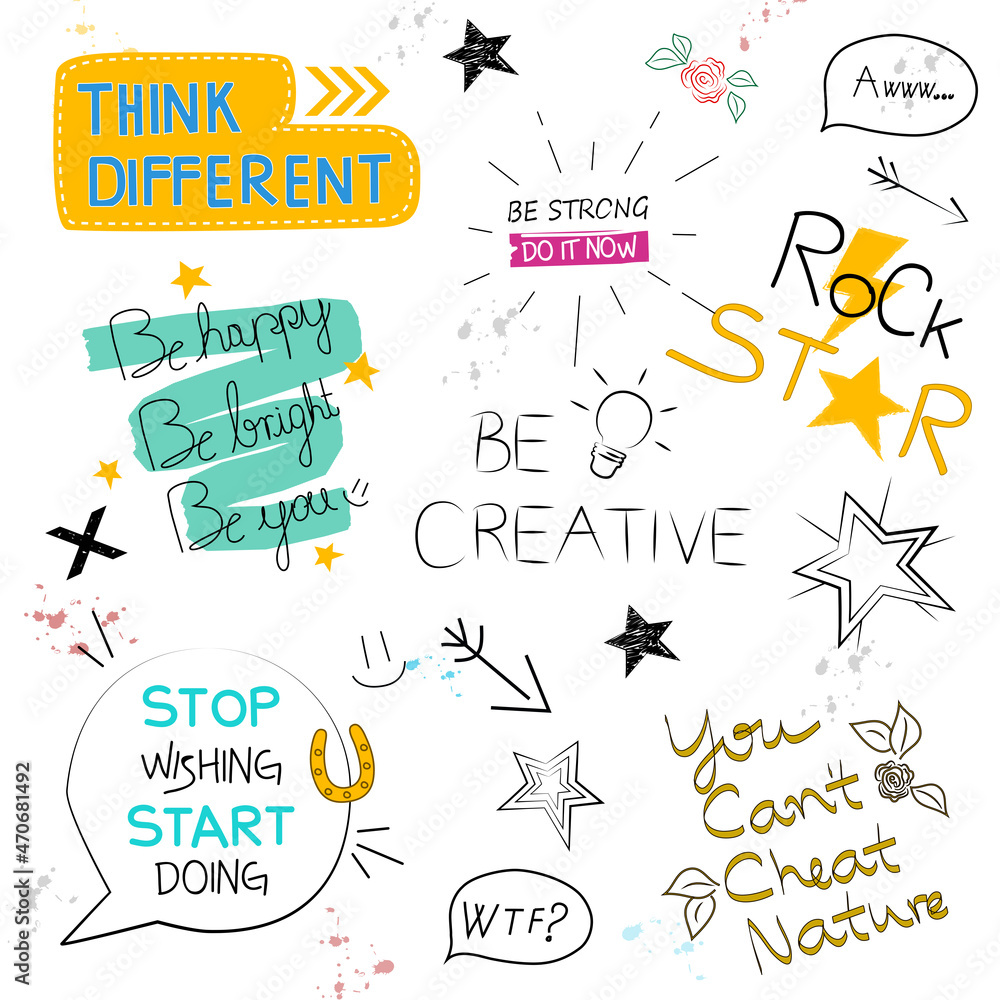 THINK
DIFFERENT
Awww...
BE STRONG
DO IT NOW
ROCK
STAR
Be happy
Be bright
Be you
BE
CREATIVE
STOP
WISHING
START
DOING
WTF?
You
Can't
Cheat
Nature
Adobe Stock | #470681492